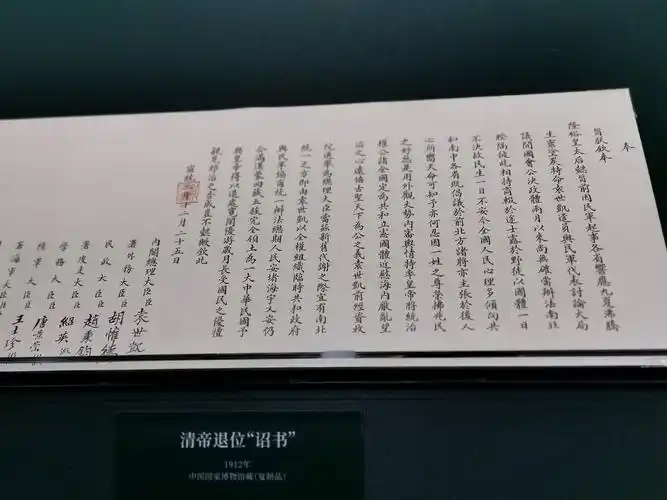 奉
旨朕欽奉
隆裕皇太后懿旨前因民軍起事各省響應九夏沸騰
生靈塗炭特命袁世凱遣員與民軍代表討論大局
議開國會公決政體兩月以來尚無確當辦法南北
暌隔彼此相持商輟於途士露於野徒以國體一日
不決故民生一日不安今全國人民心理多傾向共
和南中各省既倡議於前北方諸將亦主張於後人
心所嚮天命可知予亦何忍因一姓之尊榮拂兆民
之好惡是用外觀大勢內審輿情特率皇帝將統治
權公諸全國定為共和立憲國體近慰海內厭亂望
治之心遠協古聖天下為公之義袁世凱前經資政
院選舉為總理大臣當茲新舊代謝之際宜有南北
統一之方即由袁世凱以全權組織臨時共和政府
與民軍協商統一辦法總期人民安堵海宇乂安仍
合滿漢蒙回藏五族完全領土為一大中華民國予
與皇帝得以退處寬閒優游歲月長受國民之優禮
親見郅治之告成豈不懿歟欽此
宣統三年十二月二十五日
內閣總理大臣臣袁世凱
署外務大臣臣胡惟德
民政大臣臣趙秉鈞
署度支大臣臣紹英
學務大臣臣唐景崇
陸軍大臣臣王士珍
署海軍大臣臣
清帝退位“诏书”
1912年
中国国家博物馆藏(复制品)